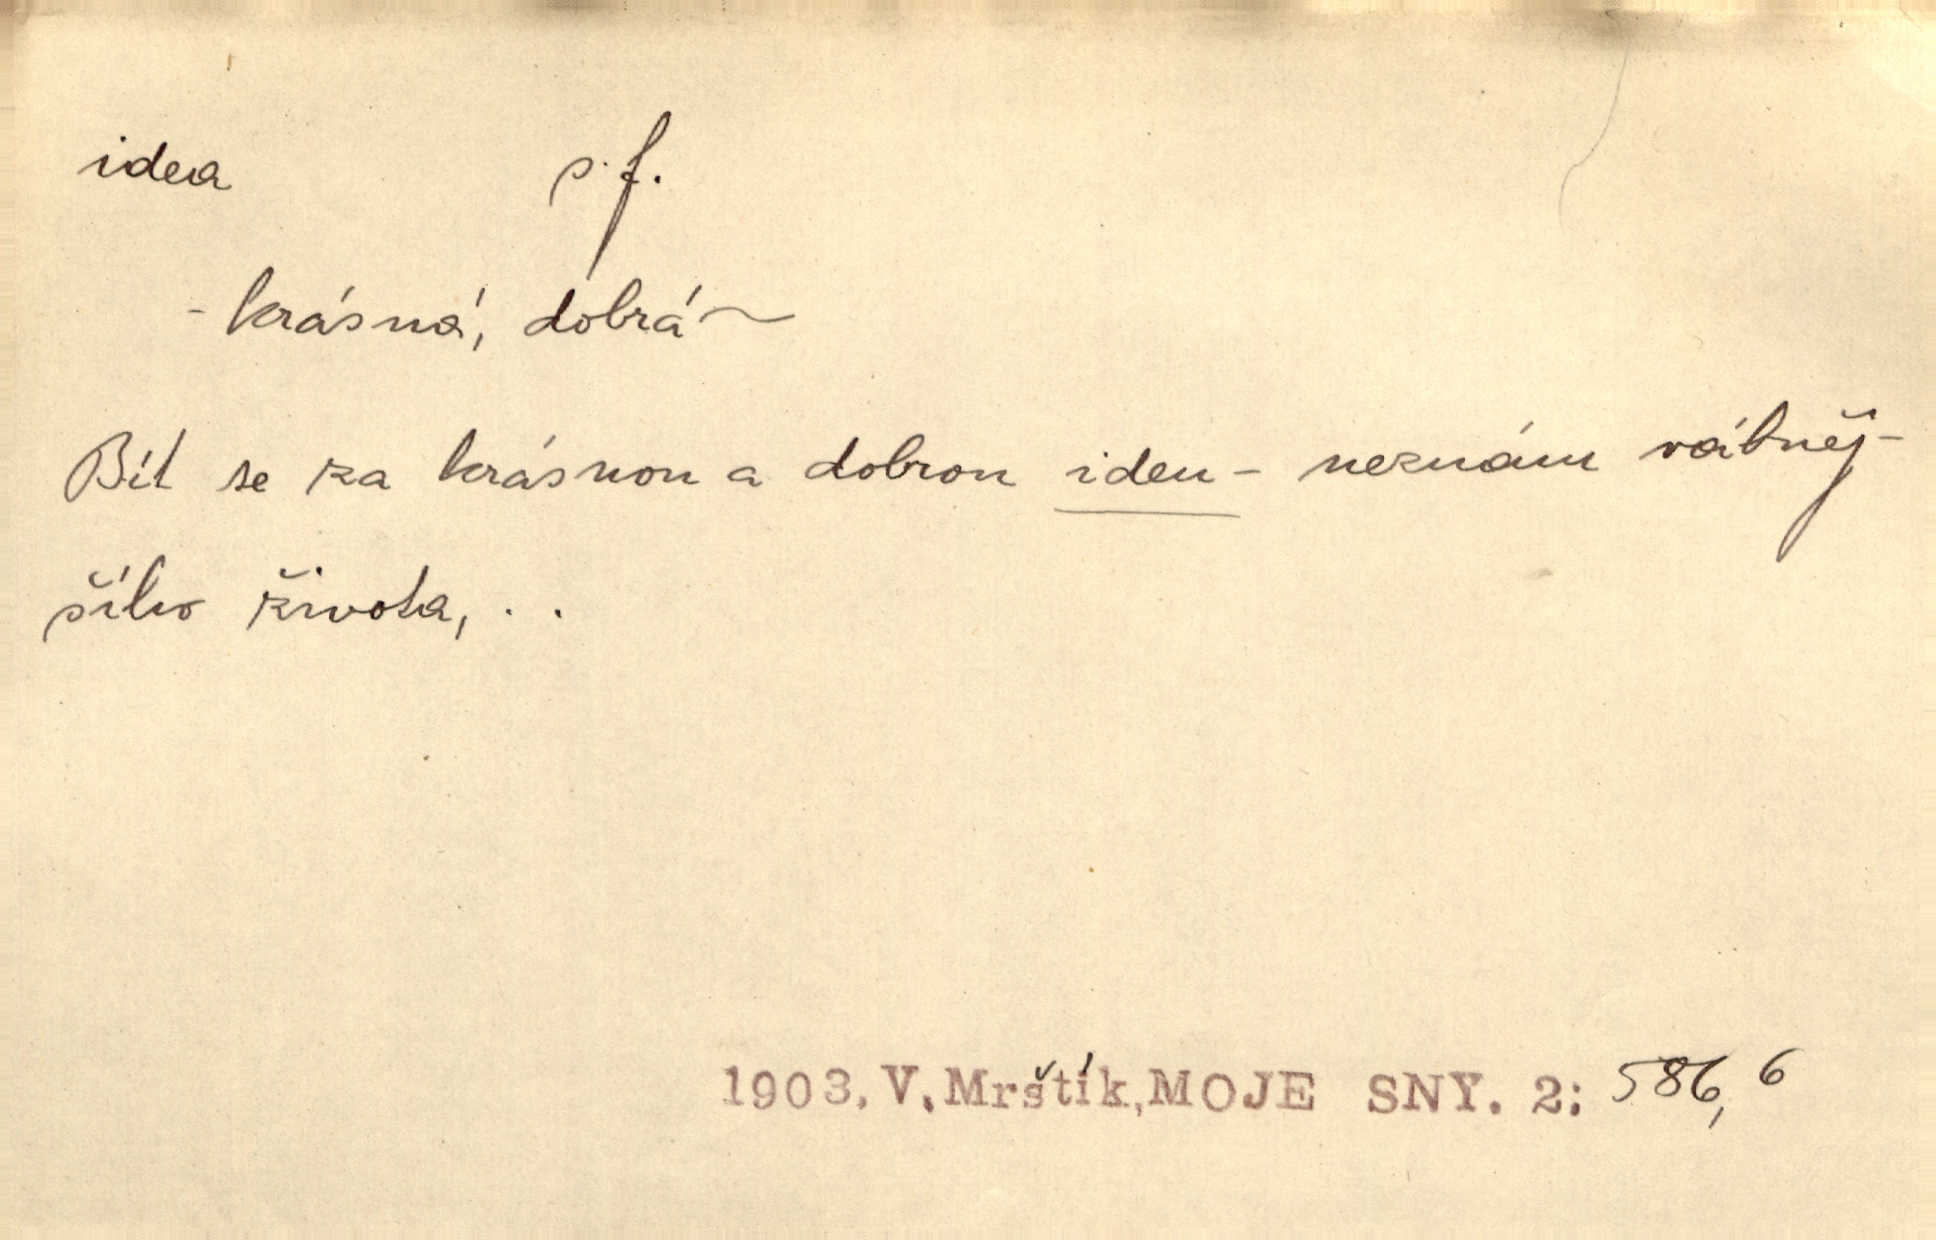 idea s. f.
- krásná, dobrá ~
Bít se za krásnou a dobrou ideu - neznám vábněj-
šího života, . .
1903, V. Mrštík, MOJE SNY. 2: 586, 6